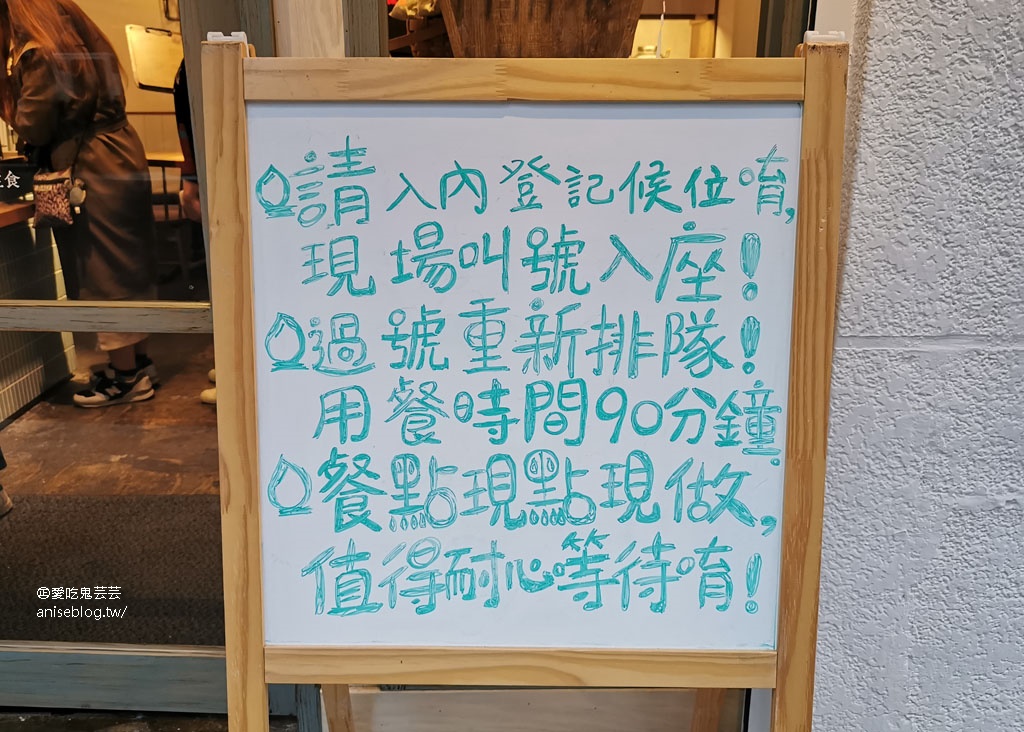 請入內登記候位唷,
現場叫號入座!
過號重新排隊!
用餐時間90分鐘.
餐點現點現做,
值得耐心等待唷!
愛吃鬼芸芸
aniseblog.tw/